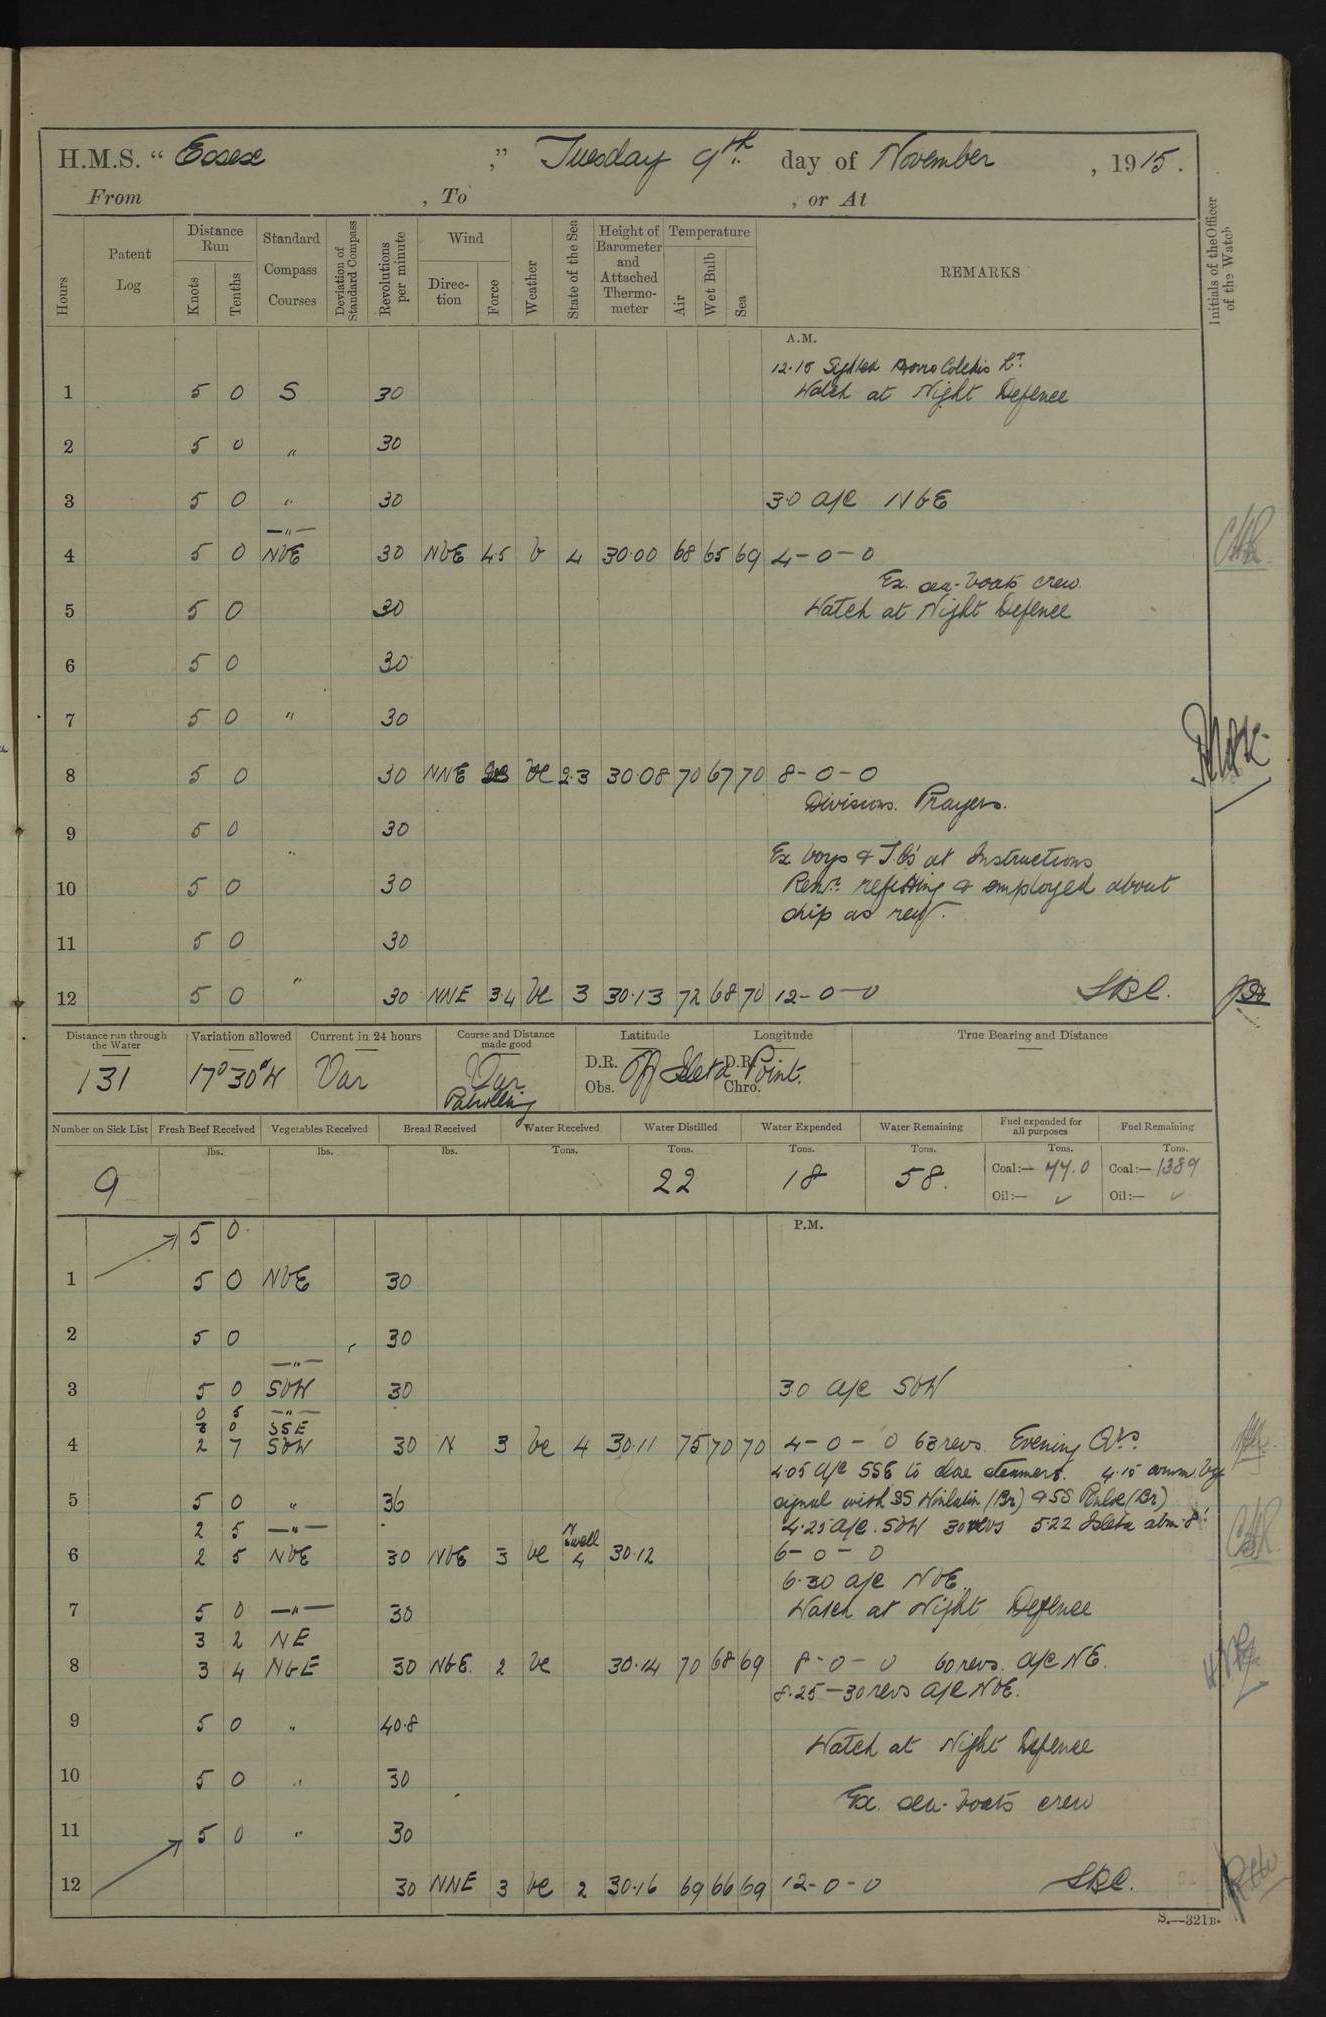 H.M.S. “ Essex ,” Tuesday 9th day of November , 1915.
From , To , or At
Hours
Patent Log
Distance Run
Knots
Tenths
Standard Compass Courses
Deviation of Standard Compass
Revolutions per minute
Wind
Direction
Force
Weather
State of the Sea
Height of Barometer and Attached Thermometer
Temperature
Air
Wet Bulb
Sea
REMARKS
Initials of the Officer of the Watch
A.M.
12.15 Sighted Lt.
1 5 0 S 30 Watch at Night Defence
2 5 0 " 30
3 5 0 " 30 3.0 a/c NbE
—"—
4 5 0 NbE 30 NbE 4.5 b 4 30.00 68 65 69 4-0-0
Ex. sea-boats crew
5 5 0 30 Watch at Night Defence
6 5 0 30
7 5 0 " 30
8 5 0 30 NNE bc 2.3 30.08 70 67 70 8-0-0
Divisions. Prayers.
9 5 0 30
"
Ex boys & at Instructions
10 5 0 30 Remr. refitting & employed about
ship as req.
11 5 0 30
12 5 0 " 30 NNE 3.4 bc 3 30.13 72 68 70 12-0-0
Distance run through the Water
Variation allowed
Current in 24 hours
Course and Distance made good
Latitude
Longitude
True Bearing and Distance
131 17°30'W Var Var Patrolling
D.R. Obs. Off Isleta Point. D.R. Chro.
Number on Sick List
Fresh Beef Received
Vegetables Received
Bread Received
Water Received
Water Distilled
Water Expended
Water Remaining
Fuel expended for all purposes
Fuel Remaining
lbs. lbs. lbs. Tons. Tons. Tons. Tons. Tons. Tons.
9 22 18 58. Coal:— 77.0 Coal:— 1389
Oil:— ✓ Oil:— ✓
P.M.
5 0
1 5 0 NbE 30
2 5 0 30
—"—
3 5 0 SbW 30 3.0 a/c SbW
0 5 —"—
0 SSE
4 2 7 SbW 30 N 3 bc 4 30.11 75 70 70 4-0-0 63 revs. Evening Qrs.
4.05 a/c SSE to close steamers. 4.15 comm. by
5 5 0 " 36 signal with SS (Br) & SS (Br)
2 5 —"— 4.25 a/c. SbW 30 revs 5.22 Isleta abm 8'
N Swell
6 2 5 NbE 30 NbE 3 bc 4 30.12 6-0-0
6.30 a/c NbE.
7 5 0 —"— 30 Watch at Night Defence
3 2 NE
8 3 4 NbE 30 NbE. 2 bc 30.14 70 68 69 8-0-0 60 revs. a/c NE.
8.25—30 revs a/c NbE.
9 5 0 " 40.8
Watch at Night Defence
10 5 0 " 30
Ex. sea-boats crew
11 5 0 " 30
12 30 NNE 3 bc 2 30.16 69 66 69 12-0-0
S.—321B.